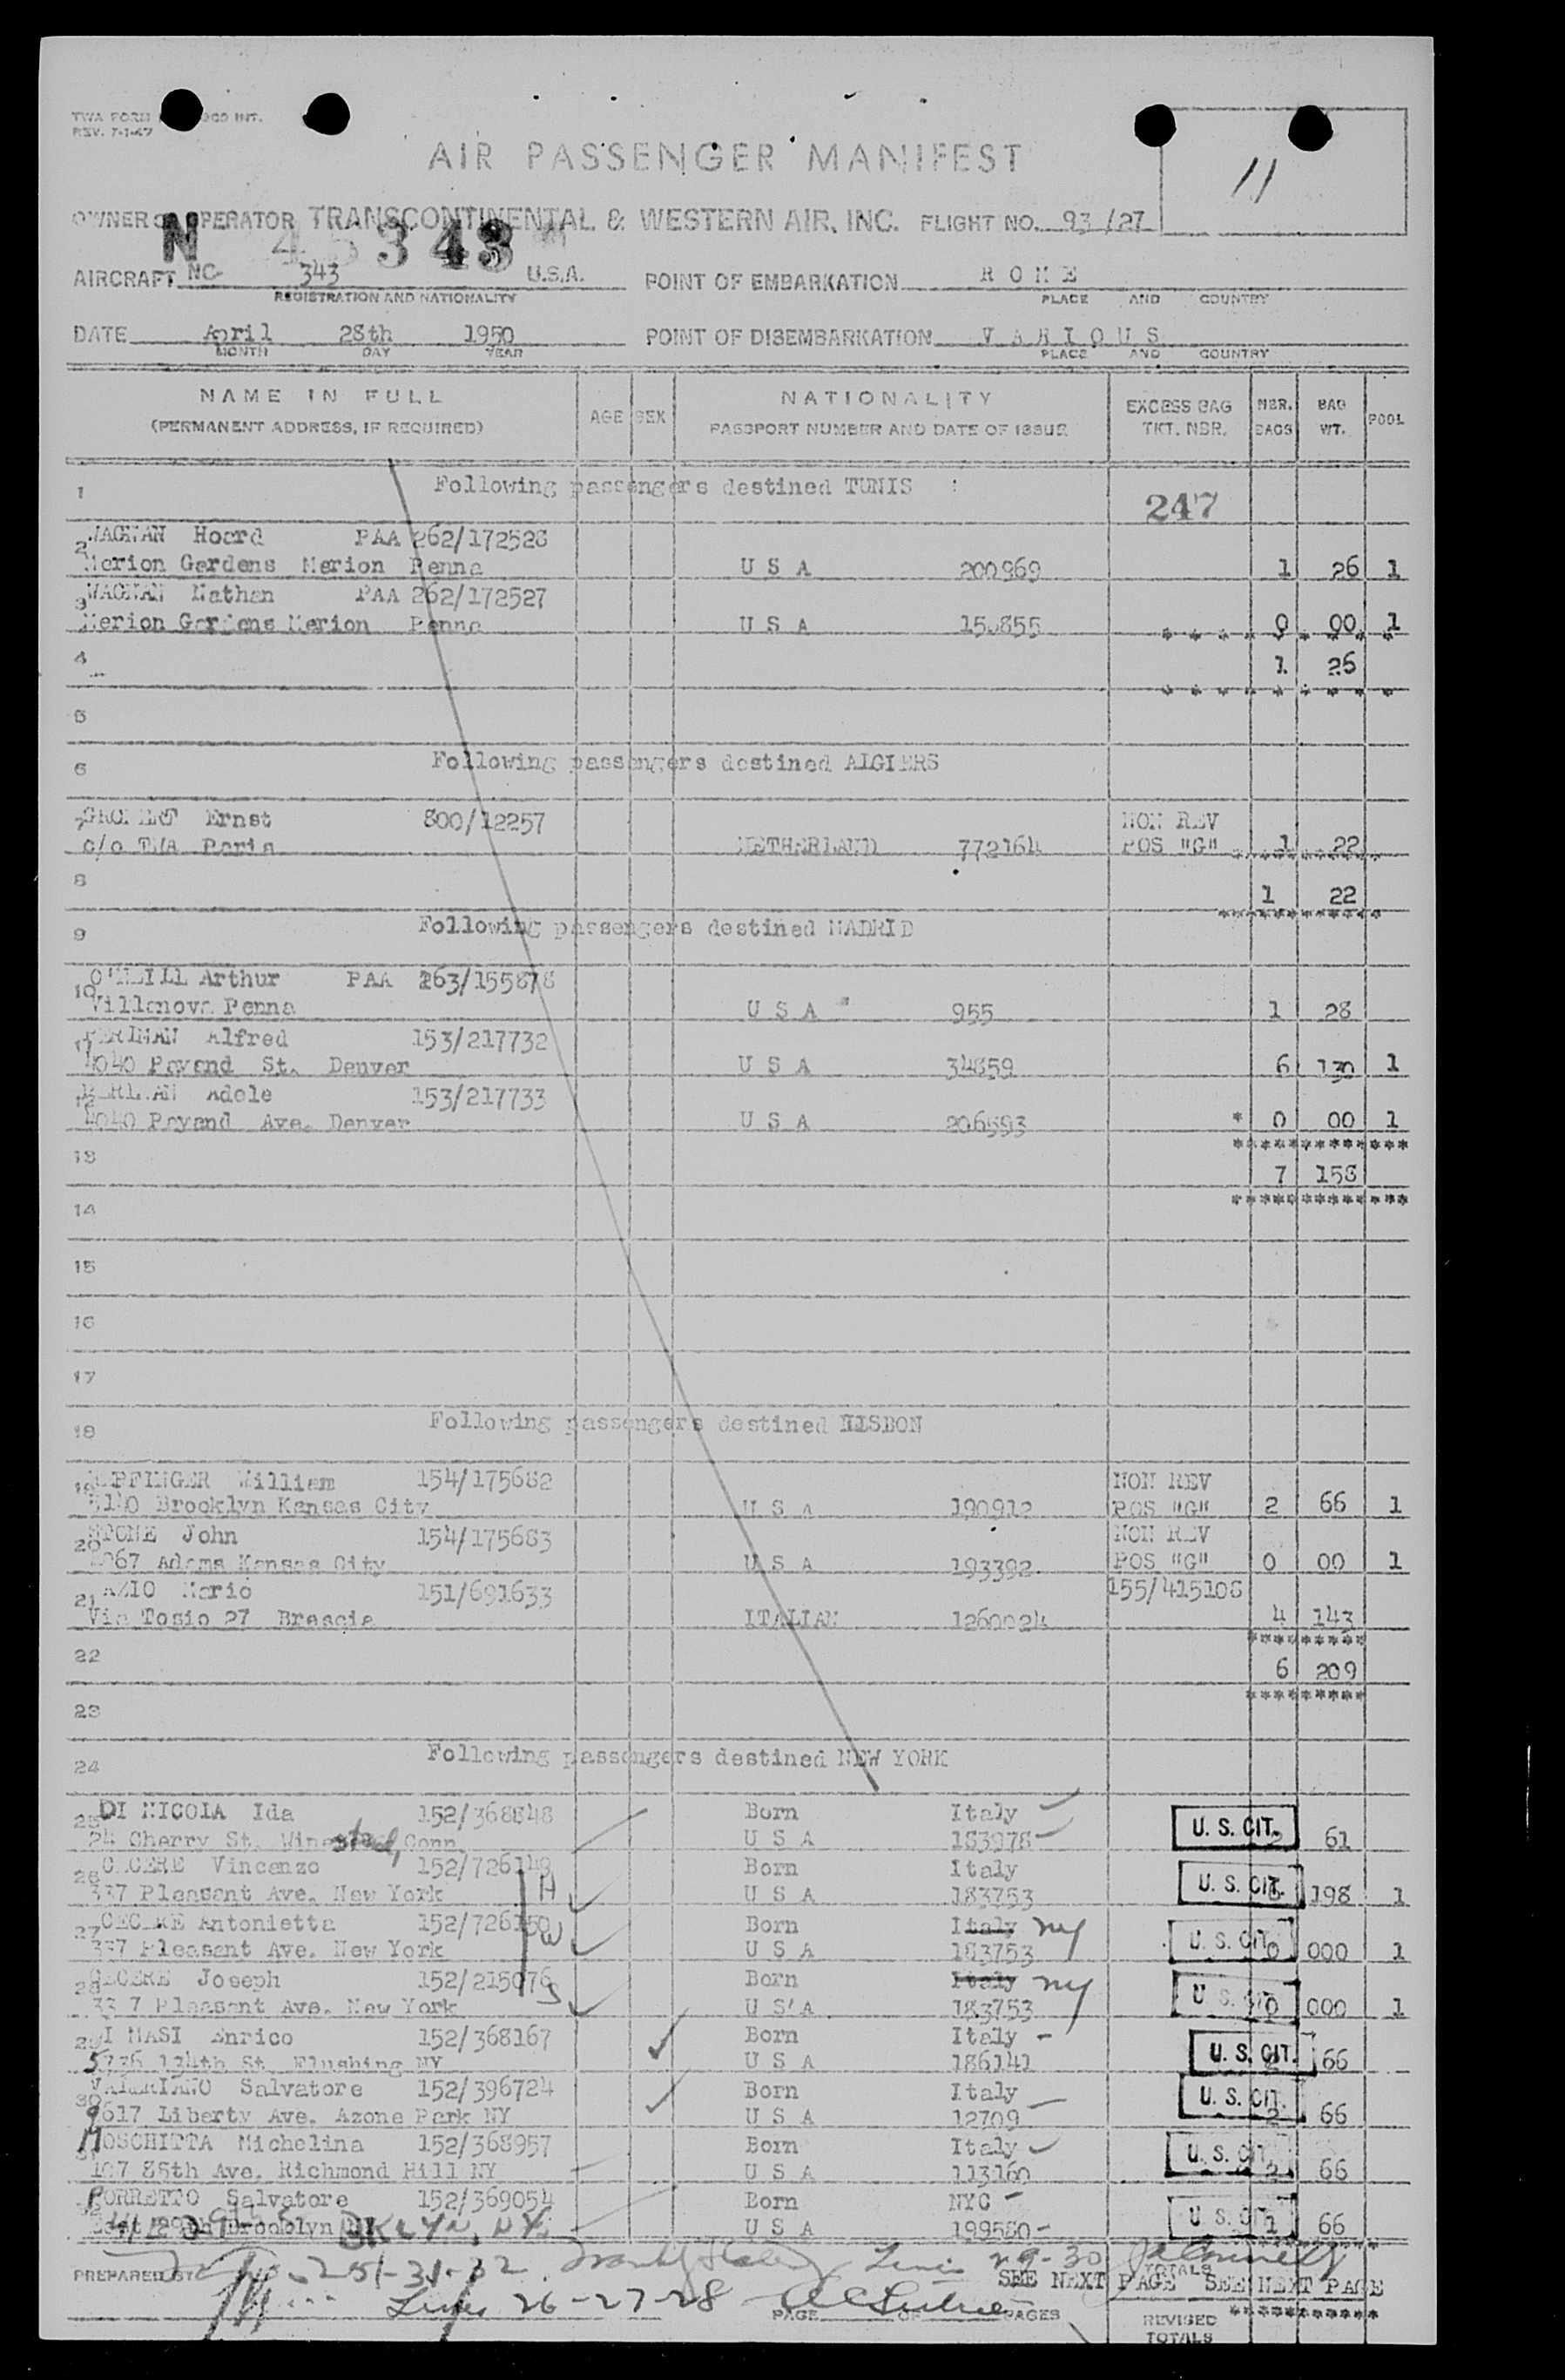 TWA FORM INT.
REV. 7-1-47
11
AIR PASSENGER MANIFEST
OWNER OPERATOR TRANSCONTINENTAL & WESTERN AIR, INC. FLIGHT NO. 93/27
N 45343
AIRCRAFT NC- 343 U.S.A. POINT OF EMBARKATION R O M E
REGISTRATION AND NATIONALITY PLACE AND COUNTRY
DATE April 28th 1950 POINT OF DISEMBARKATION V A R I O U S
MONTH DAY YEAR PLACE AND COUNTRY
NAME IN FULL AGE SEX NATIONALITY EXCESS BAG NBR. BAG POOL
(PERMANENT ADDRESS, IF REQUIRED) PASSPORT NUMBER AND DATE OF ISSUE TKT. NBR. BAGS WT.
1 Following passengers destined TUNIS :
247
2 WAGMAN Hoard PAA 262/172528
Merion Gardens Merion Penna U S A 200969 1 26 1
3 WAGMAN Nathan PAA 262/172527
Merion Gardens Merion Penna U S A 0 00 1
* * * * * * * *
4 1 26
* * * * * * * *
5
6 Following passengers destined ALGIERS
7 Ernst 800/12257 NON REV
c/o TWA Paris NETHERLAND 772164 POS "G" 1 22
8 1 22
9 Following passengers destined MADRID
10 O'NEILL Arthur PAA 263/155878
Villanova Penna U S A 955 1 28
11 PERLMAN Alfred 153/217732
4040 Poyand St. Denver U S A 34859 6 130 1
12 PERLMAN Adele 153/217733
4040 Poyand Ave. Denver U S A 206593 * 0 00 1
13 7 158
14
15
16
17
18 Following passengers destined LISBON
19 William 154/175682 NON REV
Brooklyn Kansas City U S A 190912 POS "G" 2 66 1
20 STONE John 154/175683 NON REV
Adams Kansas City U S A 193392 POS "G" 0 00 1
21 Mario 151/691633 155/415108
Via Tosio 27 Brescia ITALIAN 1260024 4 143
22 6 209
23
24 Following passengers destined NEW YORK
25 DI NICOLA Ida 152/368848 Born Italy
24 Cherry St. Winsted, Conn U S A 183978 U. S. CIT. 2 61
26 CECERE Vincenzo 152/726149 H Born Italy
337 Pleasant Ave. New York U S A 183753 U. S. CIT. 198 1
27 CECERE Antonietta 152/726150 W Born Italy NY
337 Pleasant Ave. New York U S A 183753 U. S. CIT. 0 000 1
28 CECERE Joseph 152/215076 S Born Italy NY
337 Pleasant Ave. New York U S A 183753 U. S. CIT. 0 000 1
29 DI MASI Enrico 152/368167 Born Italy
5736 134th St. Flushing NY U S A 186141 U. S. CIT. 2 66
30 VALERIANO Salvatore 152/396724 Born Italy
9617 Liberty Ave. Azone Park NY U S A 12709 U. S. CIT. 2 66
31 MOSCHITTA Michelina 152/368957 Born Italy
107 85th Ave. Richmond Hill NY U S A 113160 U. S. CIT. 2 66
PORRETTO Salvatore 152/369054 Born NYC
Brooklyn BKLYN, NY. U S A 199580 U. S. CIT. 1 66
PREPARED BY 25-31-32 Lines 29-30 TOTALS
SEE NEXT PAGE SEE NEXT PAGE
Lines 26-27-28 PAGE OF PAGES REVISED
TOTALS